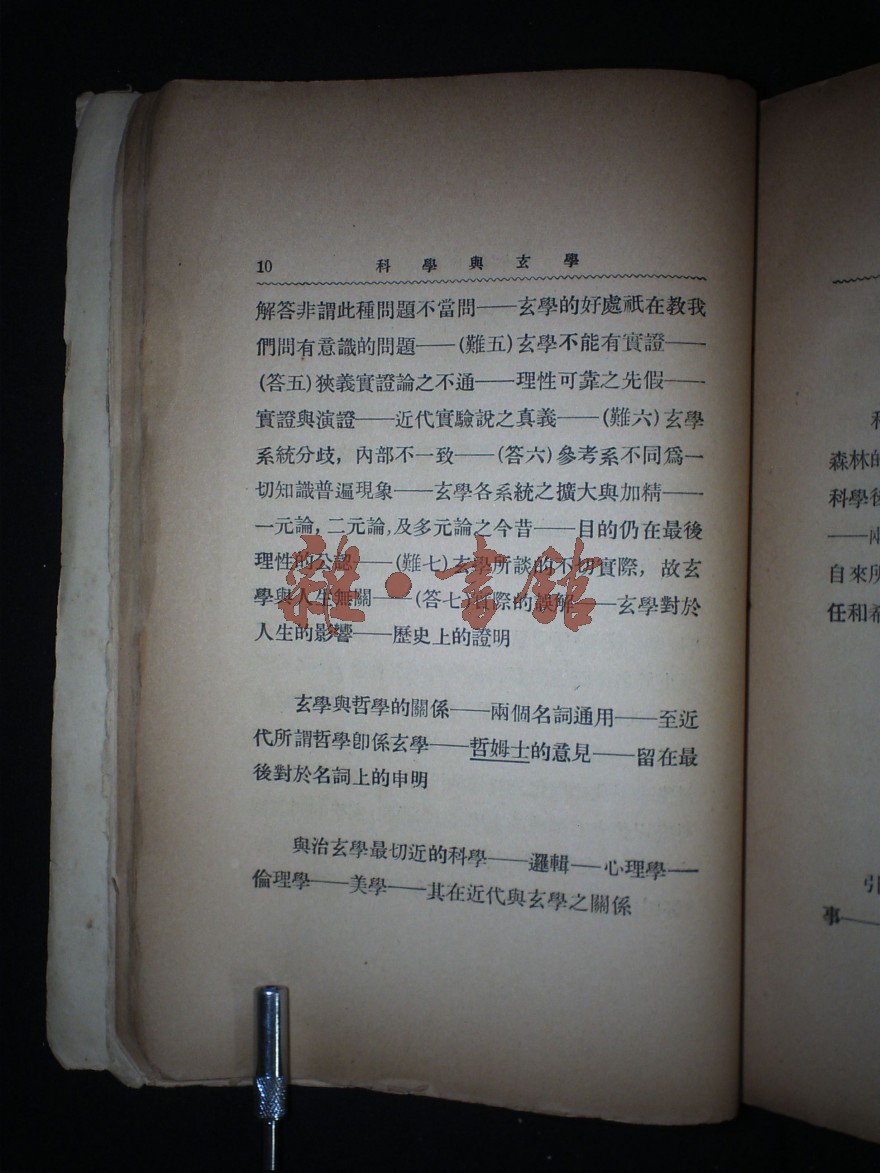 10 科學與玄學
解答非謂此種問題不當問——玄學的好處祇在教我
們問有意識的問題——(難五)玄學不能有實證——
(答五)狹義實證論之不通——理性可靠之先假——
實證與演證——近代實驗說之真義——(難六)玄學
系統分歧，內部不一致——(答六)參考系不同爲一
切知識普遍現象——玄學各系統之擴大與加精——
一元論，二元論，及多元論之今昔——目的仍在最後
理性的公認——(難七)玄學所談的不切實際，故玄
學與人生無關——(答七)實際的誤解——玄學對於
人生的影響——歷史上的證明
玄學與哲學的關係——兩個名詞通用——至近
代所謂哲學卽係玄學——哲姆士的意見——留在最
後對於名詞上的申明
與治玄學最切近的科學——邏輯——心理學——
倫理學——美學——其在近代與玄學之關係
雜·書館
森林的
科學後
——兩
自來所
任和希
引
事——